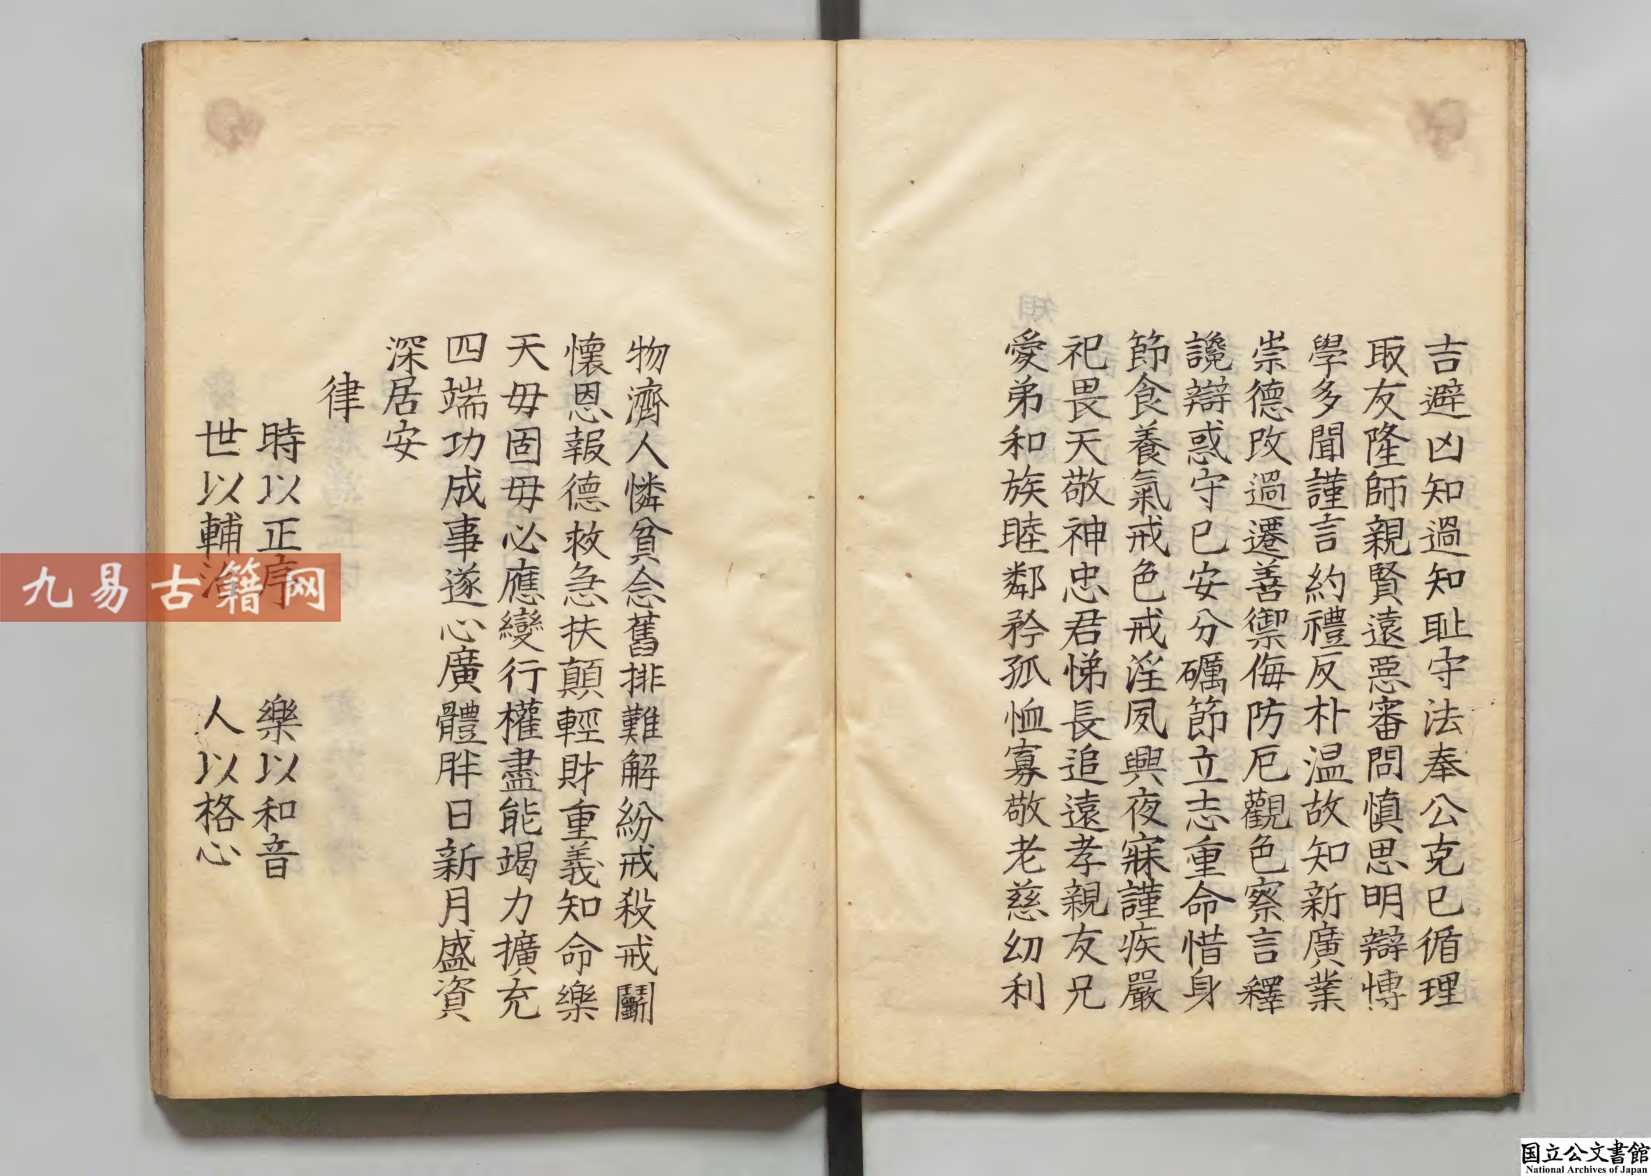 吉避凶知過知耻守法奉公克已循理
取友隆師親賢遠惡審問慎思明辯博
學多聞謹言約禮反朴温故知新廣業
崇德改過遷善禦侮防厄觀色察言釋
讒辯惑守已安分礪節立志重命惜身
節食養氣戒色戒淫夙興夜寐謹疾嚴
祀畏天敬神忠君悌長追遠孝親友兄
愛弟和族睦鄰矜孤恤寡敬老慈幼利
物濟人憐貧念舊排難解紛戒殺戒鬭
懷恩報德救急扶顛輕財重義知命樂
天毋固毋必應變行權盡能竭力擴充
四端功成事遂心廣體胖日新月盛資
深居安
律
時以正序 樂以和音
世以輔治 人以格心
九易古籍网
国立公文書館
National Archives of Japan